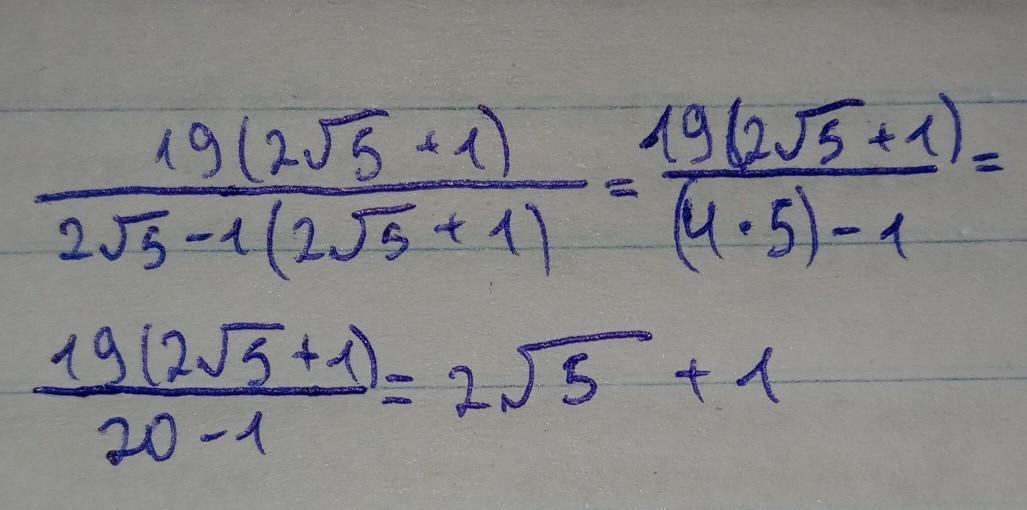 19(2√5 + 1)
2√5 - 1(2√5 + 1)
=
19(2√5 + 1)
(4 · 5) - 1
=
19(2√5 + 1)
20 - 1
= 2√5 + 1